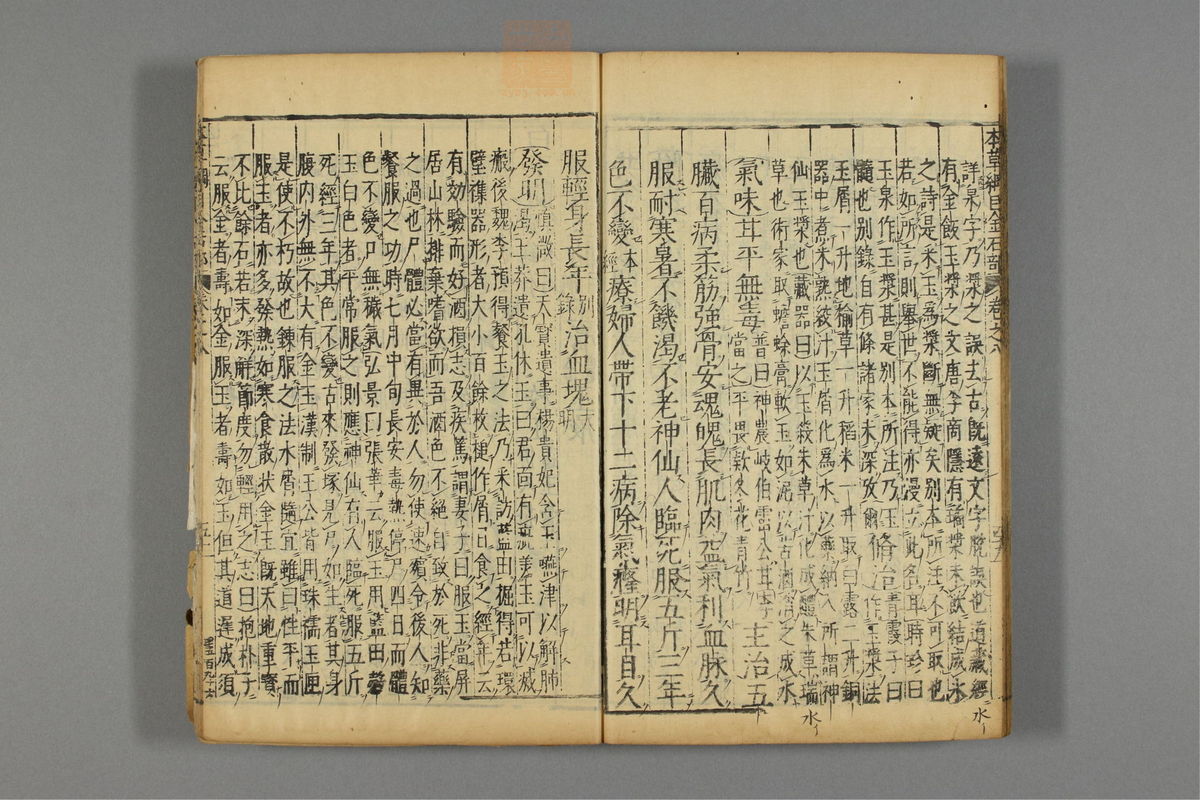 本草綱目金石部 卷之八
詳泉字乃漿之誤去古既遠文字脫誤也道藏經
有金飯玉漿之文唐李商隱有瓊漿未飲結成冰
之詩是采玉爲漿斷無疑矣別本所注不可取也
若如所言則舉世不能得亦漫立此名耳時珍曰
玉泉作玉漿甚是別本所注乃玉
髓也別錄自有條諸家未深攷爾
修治青霞子曰
作玉漿法
玉屑一升地榆草一升稻米一升取白露二升銅
器中煮米熟絞汁玉屑化爲水以藥納入所謂神
仙玉漿也藏器曰以玉殺朱草汁化成醴朱草瑞
草也術家取蟾蜍膏軟玉如泥以苦酒消之成水
氣味甘平無毒
普曰神農岐伯雷公甘李
當之平畏欵冬花青竹
主治五
臟百病柔筋強骨安魂魄長肌肉益氣利血脉久
服耐寒暑不饑渴不老神仙人臨死服五斤三年
色不變本經療婦人帶下十二病除氣癃明耳目久
服輕身長年別錄治血塊大明
發明
慎微曰天寳遺事楊貴妃含玉嚥津以解肺
渴王莽遺孔休玉曰君面有疵美玉可以滅
瘢後魏李預得餐玉之法乃采訪藍田掘得若環
璧襍器形者大小百餘枚槌作屑日食之經年云
有効驗而好酒損志及疾篤謂妻子曰服玉當屏
居山林排棄嗜欲而吾酒色不絕自致於死非藥
之過也尸體必當有異於人勿使速殯令後人知
餐服之功時七月中旬長安毒熱停尸四日而體
色不變口無穢氣弘景曰張華云服玉用藍田穀
玉白色者平常服之則應神仙有人臨死服五斤
死經三年其色不變古來發塚見尸如生者其身
腹內外無不大有金玉漢制王公皆用珠襦玉匣
是使不朽故也鍊服之法水屑隨宜雖曰性平而
服玉者亦多發熱如寒食散狀金玉旣天地重寳
不比餘石若未深解節度勿輕用之志曰抱朴子
云服金者壽如金服玉者壽如玉但其道遲成須